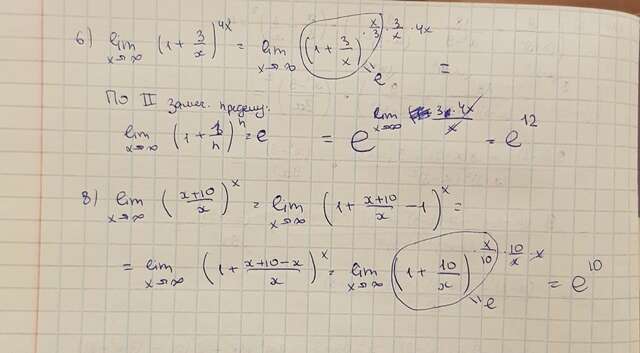 6) lim x→∞ (1 + 3/x)^4x = lim x→∞ (1 + 3/x)^x/3 · 3/x · 4x = "e
По II замеч. пределу:
lim x→∞ (1 + 1/n)^n = e = e^lim x→∞ 3·4x/x = e^12
8) lim x→∞ (x+10/x)^x = lim x→∞ (1 + x+10/x - 1)^x =
= lim x→∞ (1 + x+10-x/x)^x = lim x→∞ (1 + 10/x)^x/10 · 10/x · x "e = e^10